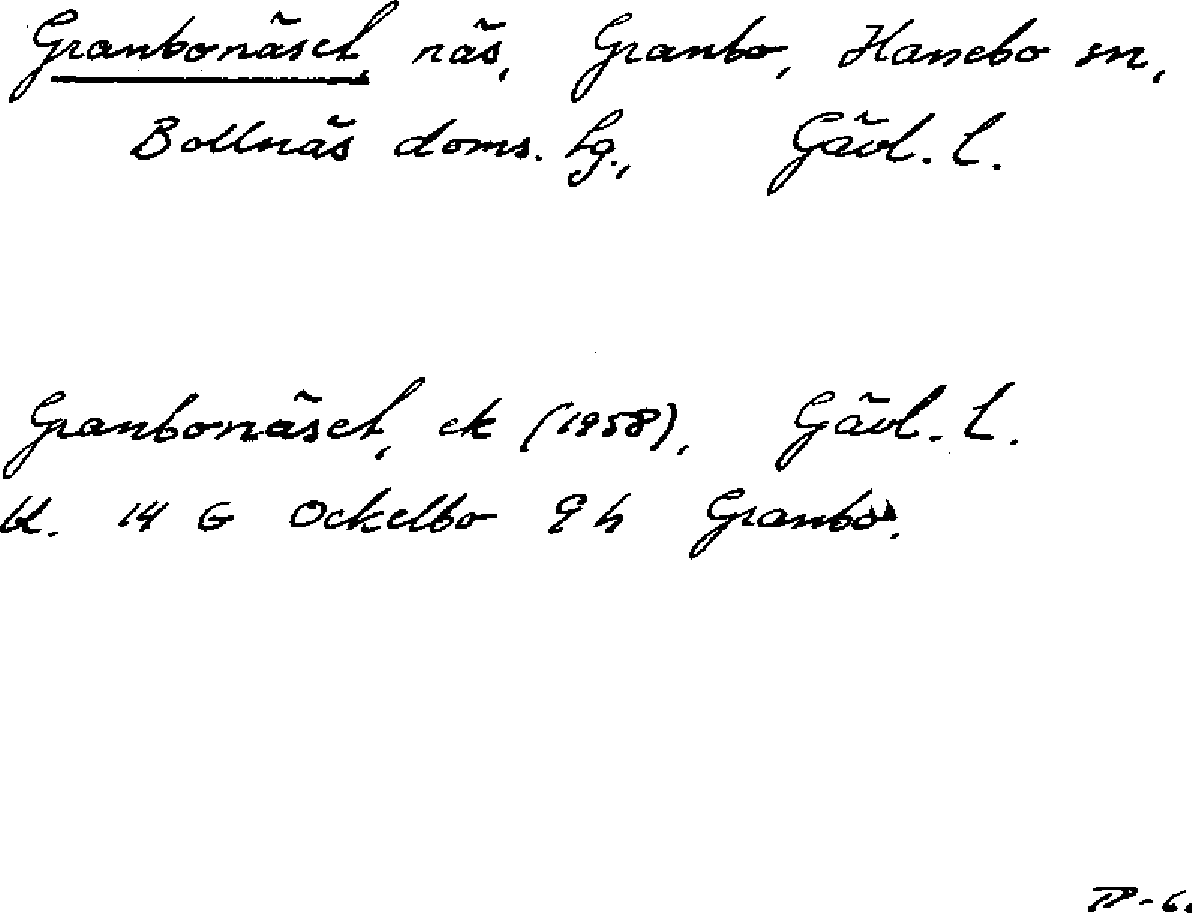 Granbonäset, näs, Granbo, Hanebo sn,
Bollnäs doms. hg., Gävl. l.
Granbonäset, ek (1958), Gävl. l.
bl. 14 G Ockelbo 9 h Granbo.